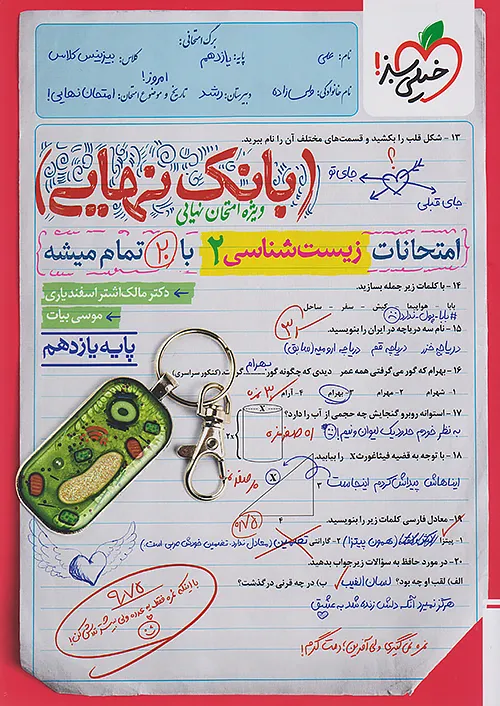 برگ امتحانی:
نام: علمی
پایه: یازدهم
کلاس: بیزینس کلاس
امروز!
نام خانوادگی: ولس‌زاده
دبیرستان: رشد
تاریخ و موضوع امتحان: امتحان نهایی!
خیلی سبز!
۱۳ - شکل قلب را بکشید و قسمت‌های مختلف آن را نام ببرید.
؟
جای تو
جای قبلی
(بانک نهایی)
ویژه امتحان نهایی
امتحانات زیست‌شناسی ۲ با ۲۰ تمام میشه
۱۴ - با کلمات زیر جمله بسازید.
بابا - هواپیما - کیش - سفر - ساحل
#بابا_پول_ندارد
← دکتر مالک‌اشتر اسفندیاری
← موسی بیات
پایه یازدهم
۱۵ - نام سه دریاچه در ایران را بنویسید.
دریاچه خزر دریاچه قم دریاچه ارومیه (سابق)
۱۶ - بهرام که گور می‌گرفتی همه عمر دیدی که چگونه گور بهرام گرفت. (کنکور سراسری)
۱- شهرام ۲- بهرام ۳- بهرام ۴- آرام
۳۰ نمره
۱۷ - استوانه روبرو گنجایش چه حجمی از آب را دارد؟
X
2x
به نظر خودم حدود یک لیوان و نیم!
۱۸ - با توجه به قضیه فیثاغورث X را بیابید.
X
۳
۴
ایناهاش پیداش کردم اینجاست
۱۹ - معادل فارسی کلمات زیر را بنویسید.
۱- پیتزا (همون پیتزا) ۲- گارانتی تضمین (معادل ندارد. تضمین خودش عربی است.)
۲۰ - در مورد حافظ به سؤالات زیر جواب بدهید.
الف) لقب او چه بود؟ لسان الغیب ب) در چه قرنی درگذشت؟
هرگز نمیرد آنکه دلش زنده شد به عشق
۹٫۷۵
نمره نمی‌گیری ولی آفرین! دمت گرم!